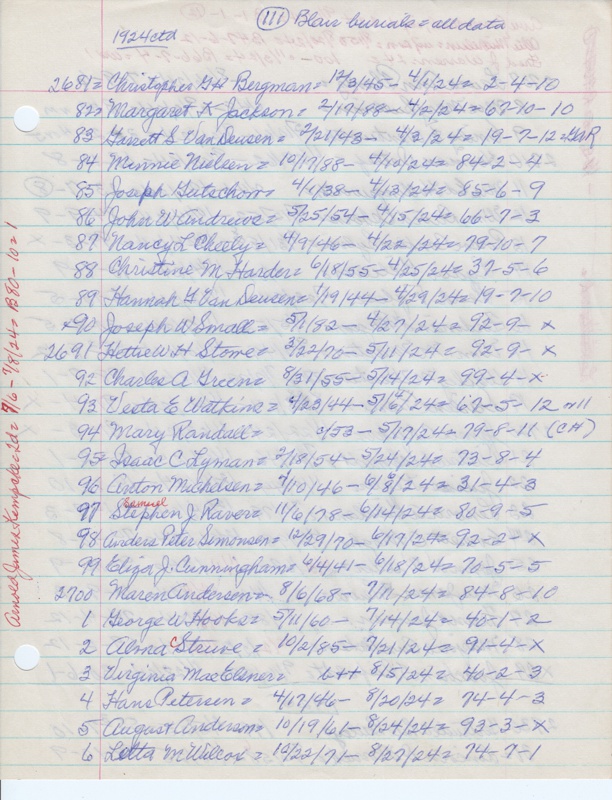 (111) Blair burials = all data
1924 ctd
2681 = Christopher G H Bergman = 12/3/45 - 4/1/24 = 2-4-10
82 = Margaret K Jackson = 2/17/88 - 4/2/24 = 67-10-10
83 Garrett S Van Deusen = 2/21/43 - 4/3/24 = 19-7-12 = GAR
84 Minnie Nielsen = 10/17/88 - 4/10/24 = 84-2-4
85 Joseph Gutschow = 4/1/38 - 4/13/24 = 85-6-9
86 John W Andrews = 5/25/54 - 4/15/24 = 66-7-3
87 Nancy L Cheely = 4/9/46 - 4/22/24 = 79-10-7
88 Christine M Harder = 6/18/55 - 4/25/24 = 37-5-6
89 Hannah G Van Deusen = 1/19/44 - 4/29/24 = 19-7-10
x90 Joseph W Small = 5/1/82 - 4/27/24 = 92-9-x
2691 Hattie W H Stowe = 3/22/70 - 5/11/24 = 92-9-x
92 Charles A Green = 8/31/55 - 5/14/24 = 99-4-x
93 Vesta E Watkins = 4/23/44 - 5/16/24 = 67-5-12 or 11
94 Mary Randall = 3/53 - 5/17/24 = 79-8-11 (CH)
95 = Isaac C Lyman = 2/18/54 - 5/24/24 = 73-8-4
96 Anton Michelsen = 4/10/46 - 6/8/24 = 31-4-3
97 Samuel Stephen J Raver = 11/6/78 - 6/14/24 = 80-9-5
98 Anders Peter Simonsen = 12/29/70 - 6/17/24 = 92-2-x
99 Eliza J. Cunningham = 6/4/41 - 6/18/24 = 70-5-5
2700 Maren Anderson = 8/6/68 - 7/11/24 = 84-8-10
1 George W Hooks = 5/11/60 - 7/14/24 = 40-1-2
2 Alma C Struve = 10/2/85 - 7/21/24 = 91-4-x
3 Virginia Mae Elsner = 8/5/24 = 40-2-3
4 Hans Petersen = 4/17/46 - 8/20/24 = 74-4-3
5 August Anderson = 10/19/61 - 8/24/24 = 93-3-x
6 Letta M Wilcox = 10/22/71 - 8/27/24 = 74-7-1
Arnold James Kempcke = 2d = 7/6 - 7/8/24 = B80-10 = 1